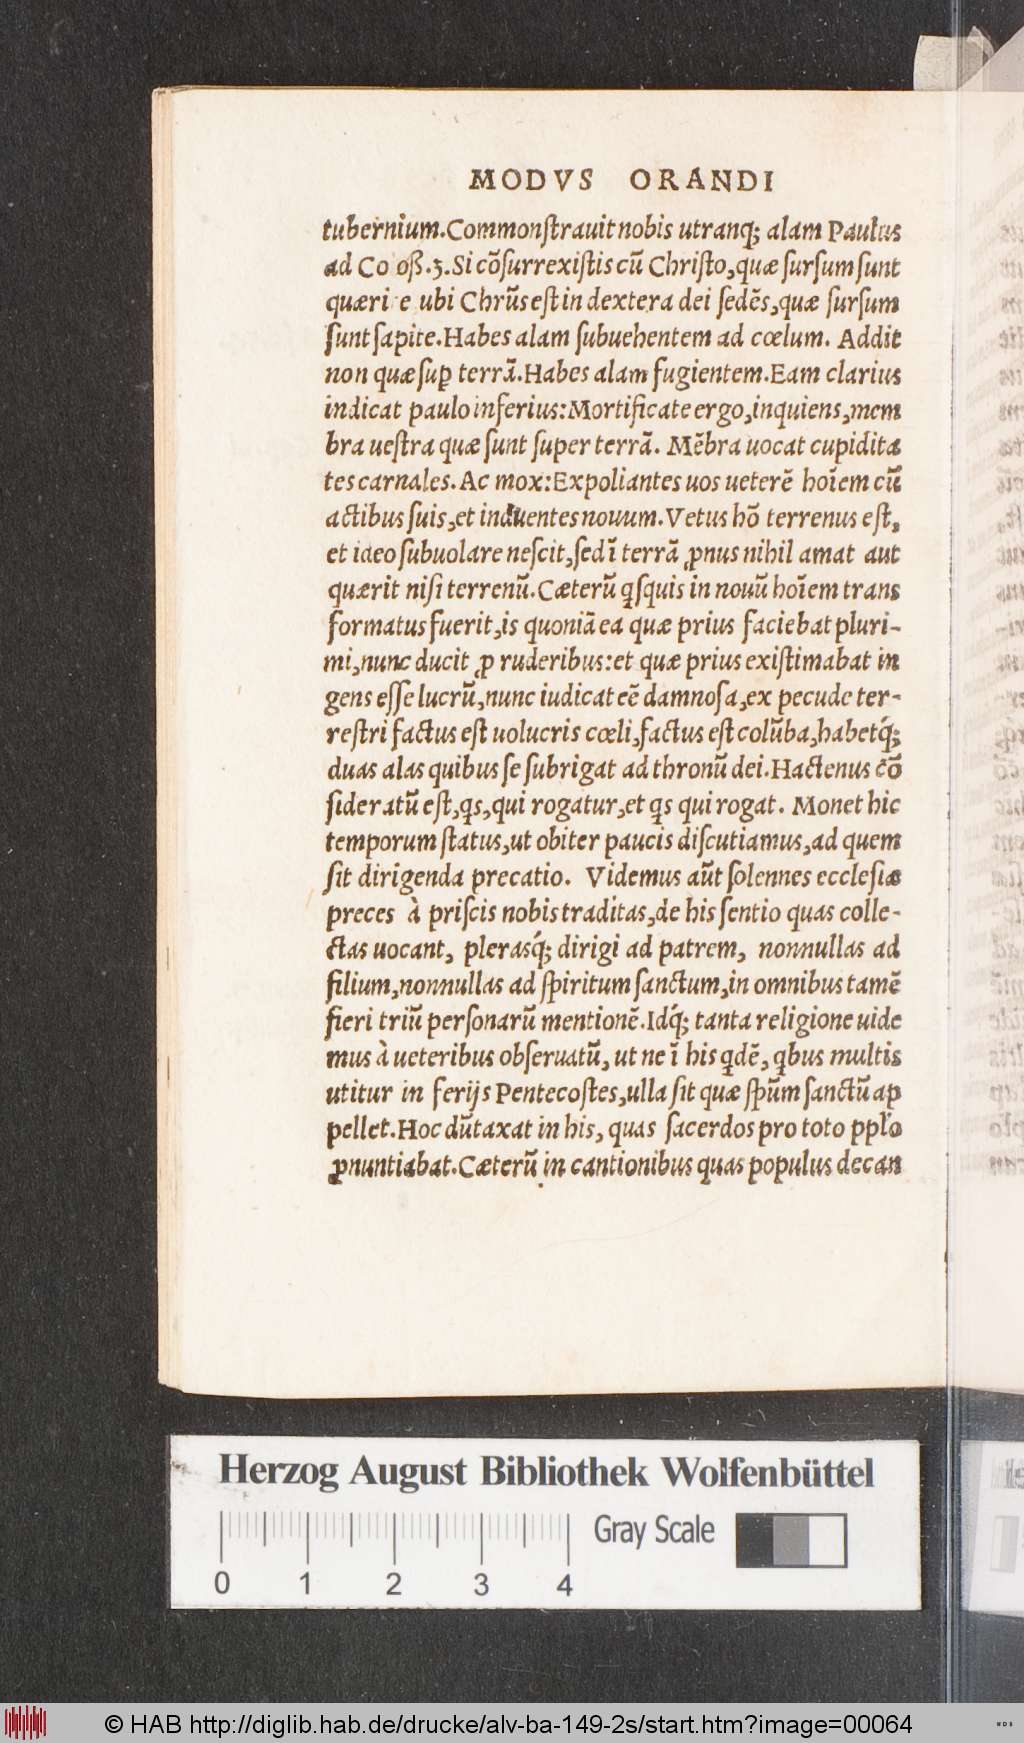 MODVS ORANDI
tubernium.Commonſtrauit nobis utranq́; alam Paulus
ad Co oß.3.Si cōſurrexiſtis cū Chriſto,quæ ſurſum ſunt
quæri e ubi Chrūs eſt in dextera dei ſedēs,quæ ſurſum
ſunt ſapite.Habes alam ſubuehentem ad cœlum. Addit
non quæ suꝑ terrā.Habes alam fugientem.Eam clarius
indicat paulo inferius:Mortificate ergo,inquiens,mem
bra ueſtra quæ ſunt ſuper terrā. Mēbra uocat cupidita
tes carnales.Ac mox:Expoliantes uos ueterē hoīem cū
actibus ſuis,et induentes nouum.Vetus hō terrenus eſt,
et ideo ſubuolare neſcit,ſed ī terrā ꝓnus nihil amat aut
quærit niſi terrenū.Cæterū qſquis in nouū hoīem trans
formatus fuerit,is quoniā ea quæ prius faciebat pluri-
mi,nunc ducit ꝓ ruderibus:et quæ prius exiſtimabat in
gens eſſe lucrū,nunc iudicat eē damnoſa,ex pecude ter-
reſtri factus eſt uolucris cœli,factus eſt colūba,habetq́;
duas alas quibus ſe ſubrigat ad thronū dei.Hactenus cō
ſideratū eſt,qs,qui rogatur,et qs qui rogat. Monet hic
temporum ſtatus,ut obiter paucis diſcutiamus,ad quem
ſit dirigenda precatio. Videmus aūt ſolennes eccleſiæ
preces à priſcis nobis traditas,de his ſentio quas colle-
ctas uocant, plerasq́; dirigi ad patrem, nonnullas ad
filium,nonnullas ad ſpiritum ſanctum,in omnibus tamē
fieri triū perſonarū mentionē.Idq́; tanta religione uide
mus à ueteribus obſeruatū, ut ne ī his qdē, qbus multis
utitur in ferijs Pentecoſtes,ulla ſit quæ ſpūm ſanctū ap
pellet.Hoc dūtaxat in his, quas ſacerdos pro toto pplo
ꝓnuntiabat.Cæterū in cantionibus quas populus decan
Herzog August Bibliothek Wolfenbüttel
Gray Scale
0 1 2 3 4
© HAB http://diglib.hab.de/drucke/alv-ba-149-2s/start.htm?image=00064